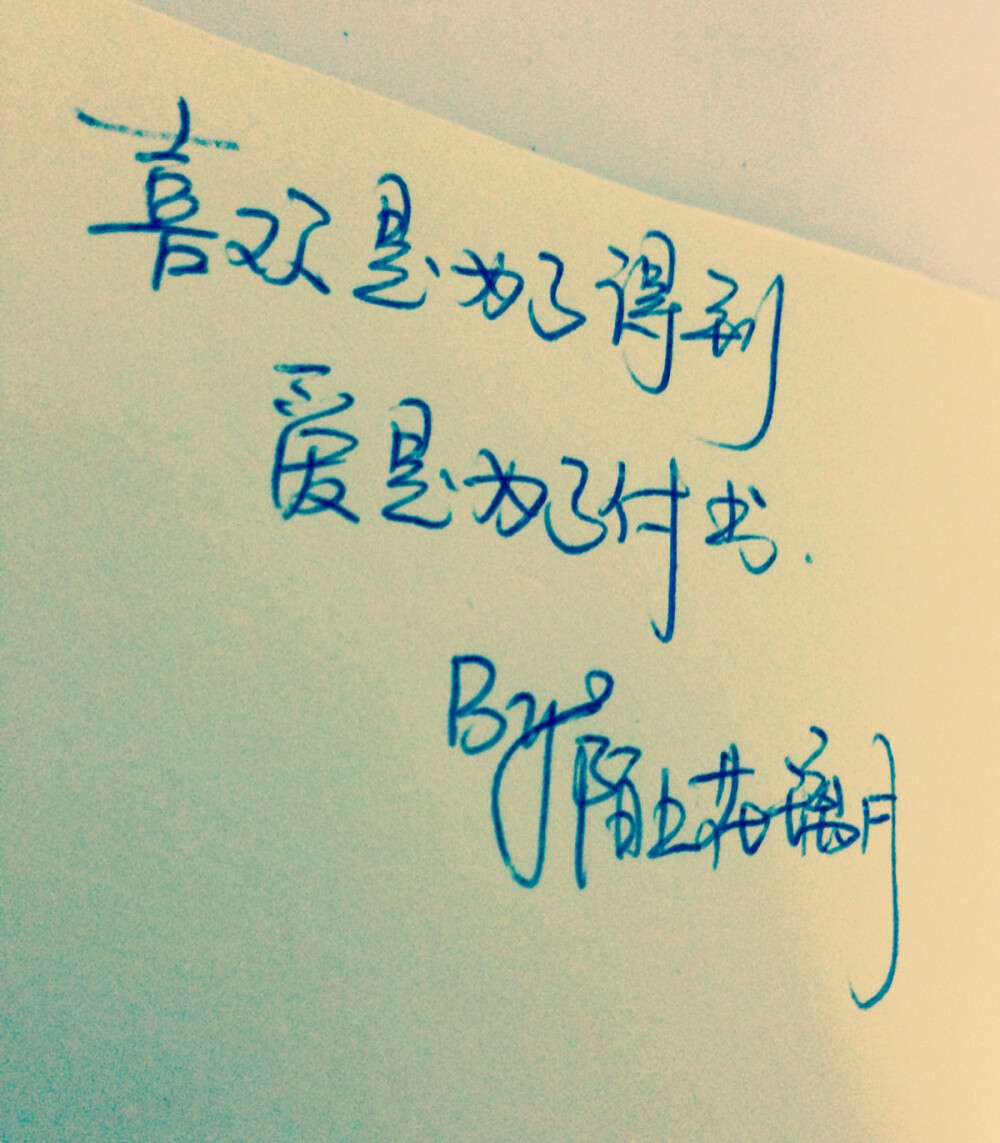 喜欢是为了得到
爱是为了付出.
By 陌上花